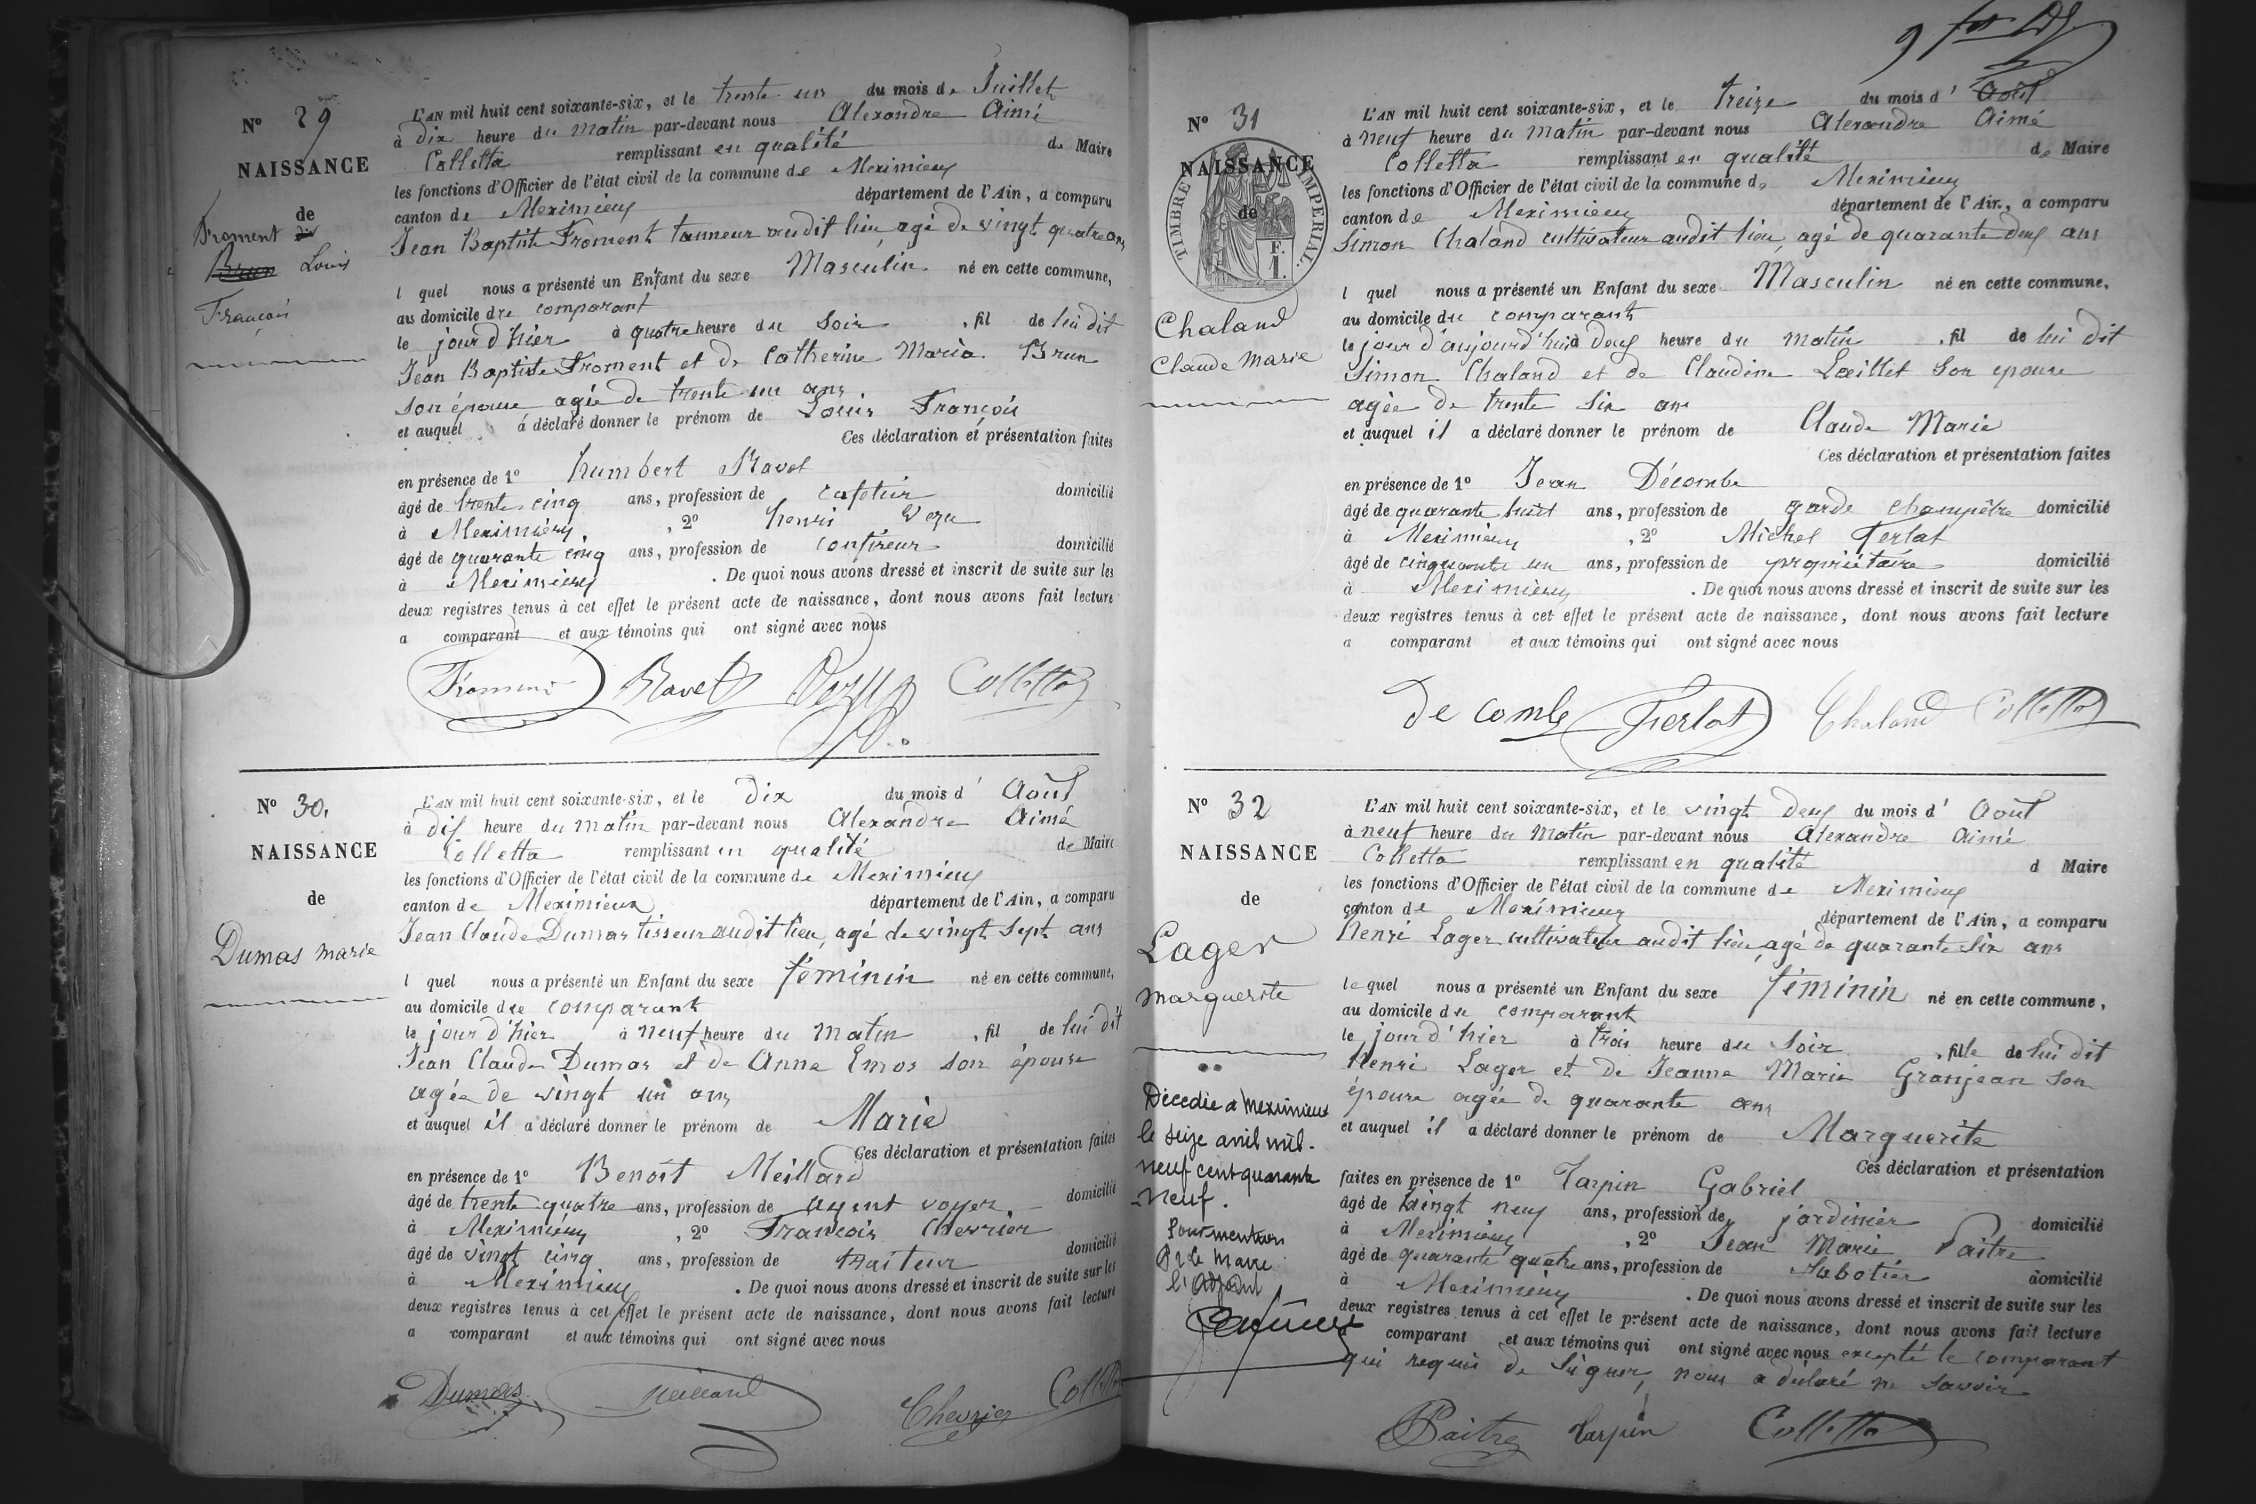 N° 29
NAISSANCE
de
Froment
Brun Louis
François
L'AN mil huit cent soixante-six, et le trente un du mois de Juillet
à dix heure du matin par-devant nous Alexandre Aimé
Colletta remplissant en qualité de Maire
les fonctions d'Officier de l'état civil de la commune de Meximieux
canton de Meximieux département de l'Ain, a comparu
Jean Baptiste Froment tanneur audit lieu, agé de vingt quatre ans
l quel nous a présenté un Enfant du sexe Masculin né en cette commune,
au domicile du comparant
le jour d'hier à quatre heure du soir , fil de lui dit
Jean Baptiste Froment et de Catherine Maria Brun
son épouse agée de trente un ans
et auquel a déclaré donner le prénom de Louis François
Ces déclaration et présentation faites
en présence de 1° humbert Ravet
âgé de trente cinq ans, profession de cafetier domicilié
à Meximieux , 2° henri
âgé de quarante cinq ans, profession de confiseur domicilié
à Meximieux . De quoi nous avons dressé et inscrit de suite sur les
deux registres tenus à cet effet le présent acte de naissance, dont nous avons fait lecture
a comparant et aux témoins qui ont signé avec nous
Froment Ravet Colletta
N° 30.
NAISSANCE
de
Dumas marie
L'AN mil huit cent soixante-six, et le dix du mois d' Août
à dix heure du matin par-devant nous Alexandre Aimé
Colletta remplissant en qualité de Maire
les fonctions d'Officier de l'état civil de la commune de Meximieux
canton de Meximieux département de l'Ain, a comparu
Jean Claude Dumas tisseur audit lieu, agé de vingt sept ans
l quel nous a présenté un Enfant du sexe féminin né en cette commune,
au domicile du comparant
le jour d'hier à neuf heure du matin , fil de lui dit
Jean Claude Dumas et de Anne Emos son épouse
agée de vingt un ans
et auquel il a déclaré donner le prénom de Marie
Ces déclaration et présentation faites
en présence de 1° Benoît Meillard
âgé de trente quatre ans, profession de agent voyer domicilié
à Meximieux , 2° François Chevrier
âgé de vingt cinq ans, profession de traiteur domicilié
à Meximieux . De quoi nous avons dressé et inscrit de suite sur les
deux registres tenus à cet effet le présent acte de naissance, dont nous avons fait lecture
a comparant et aux témoins qui ont signé avec nous
Dumas Meillard Chevrier Colletta
9
N° 31
NAISSANCE
de
TIMBRE IMPERIAL.
F.
1.
Chaland
Claude Marie
L'AN mil huit cent soixante-six, et le treize du mois d' Août
à neuf heure du matin par-devant nous Alexandre Aimé
Colletta remplissant en qualité de Maire
les fonctions d'Officier de l'état civil de la commune de Meximieux
canton de Meximieux département de l'Ain, a comparu
Simon Chaland cultivateur audit lieu, agé de quarante deux ans
l quel nous a présenté un Enfant du sexe Masculin né en cette commune,
au domicile du comparant
le jour d'aujourd'hui à deux heure du matin , fil de lui dit
Simon Chaland et de Claudine Lœillet son epouse
agée de trente six ans
et auquel il a déclaré donner le prénom de Claude Marie
Ces déclaration et présentation faites
en présence de 1° Jean Décombe
âgé de quarante huit ans, profession de garde champêtre domicilié
à Meximieux , 2° Michel Ferlat
âgé de cinquante un ans, profession de propriétaire domicilié
à Meximieux . De quoi nous avons dressé et inscrit de suite sur les
deux registres tenus à cet effet le présent acte de naissance, dont nous avons fait lecture
a comparant et aux témoins qui ont signé avec nous
De combe Ferlat Chaland Colletta
N° 32
NAISSANCE
de
Lager
marguerite
Décédée à Meximieux
le seize avril mil-
neuf cent quarante
neuf.
Pour mention
Pr le Maire
l'Adjoint
L'AN mil huit cent soixante-six, et le vingt deux du mois d' Août
à neuf heure du matin par-devant nous Alexandre Aimé
Colletta remplissant en qualité d Maire
les fonctions d'Officier de l'état civil de la commune de Meximieux
canton de Meximieux département de l'Ain, a comparu
henri Lager cultivateur audit lieu, agé de quarante six ans
le quel nous a présenté un Enfant du sexe féminin né en cette commune,
au domicile du comparant
le jour d'hier à trois heure du soir , fille de lui dit
henri Lager et de Jeanne Marie Granjean son
épouse agée de quarante ans
et auquel il a déclaré donner le prénom de Marguerite
Ces déclaration et présentation
faites en présence de 1° Tarpin Gabriel
âgé de vingt neuf ans, profession de jardinier domicilié
à Meximieux , 2° Jean Marie Paitre
âgé de quarante quatre ans, profession de Sabotier domicilié
à Meximieux . De quoi nous avons dressé et inscrit de suite sur les
deux registres tenus à cet effet le présent acte de naissance, dont nous avons fait lecture
a comparant et aux témoins qui ont signé avec nous excepté le comparant
qui requis de signer, nous a déclaré ne savoir
Paitre Tarpin Colletta